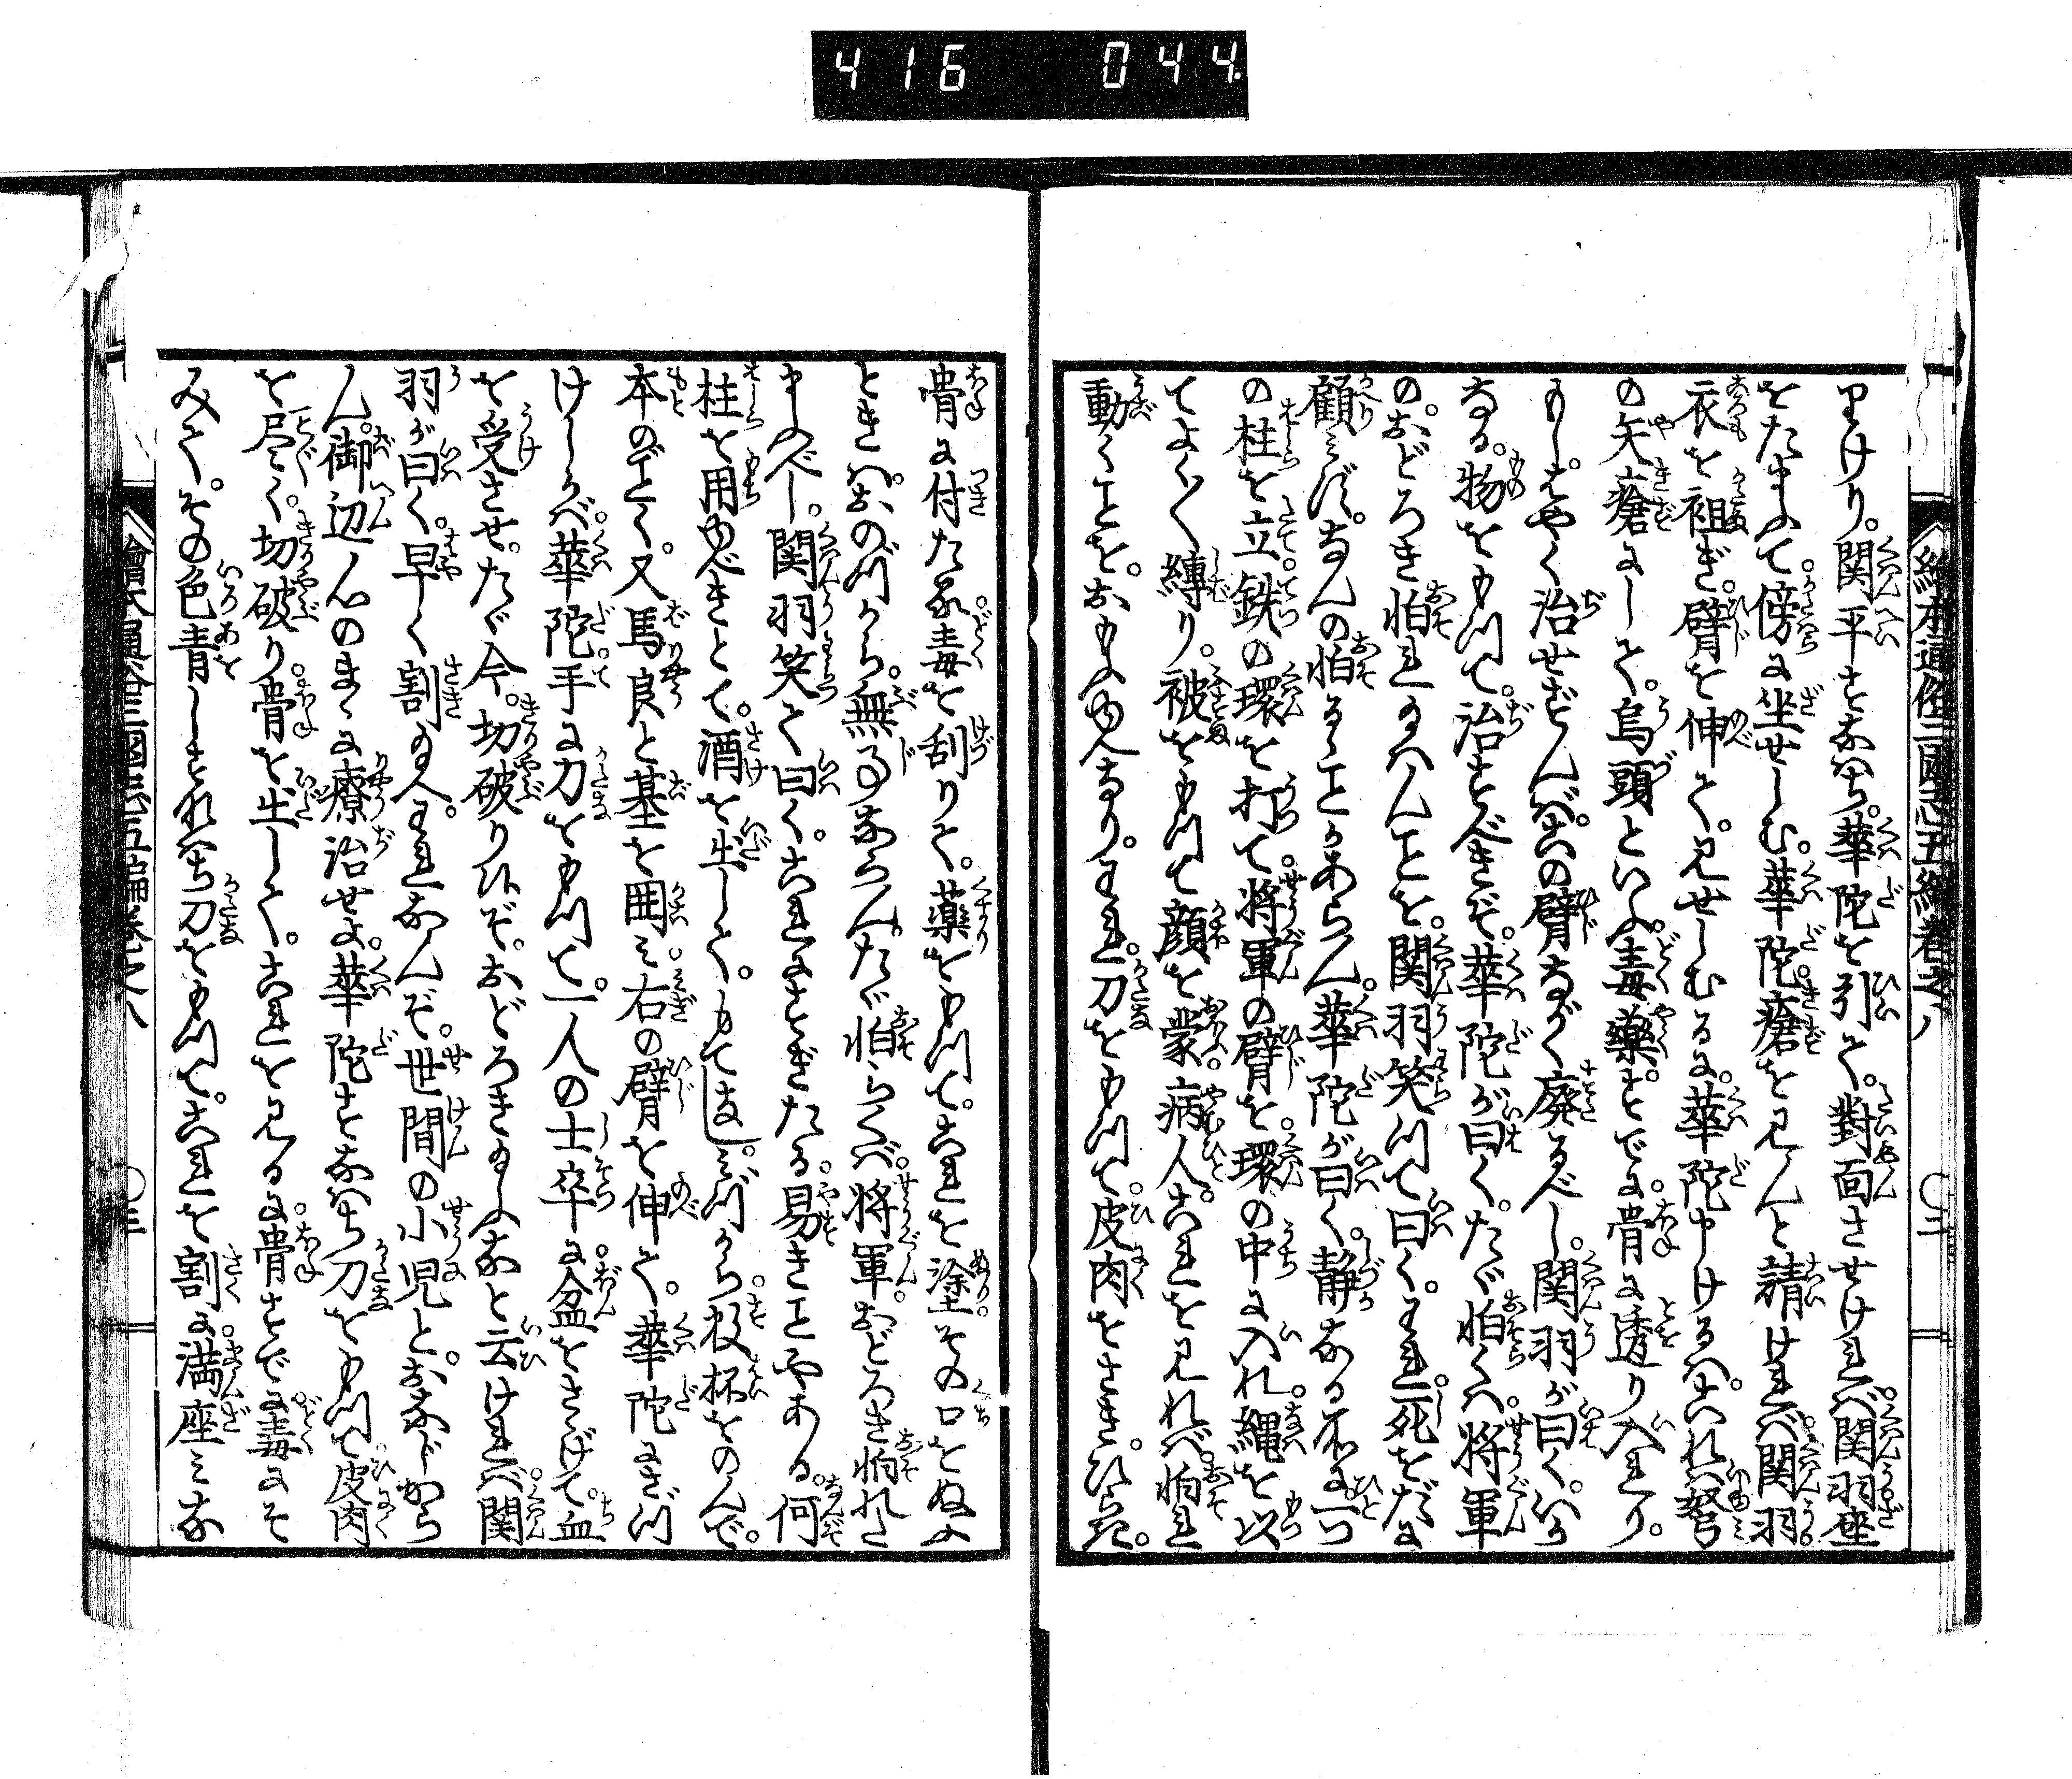 416 044.
絵本通俗三國志五編巻之八 〇二
りけり。関平すなはち。華陀を引て。對面させければ。関羽座
をたまふて。傍に坐せしむ。華陀。瘡を見んと請ければ。関羽。
衣を袒ぎ。臂を伸て。見せしむるに。華陀申けるは。これは弩
の矢瘡にして。烏頭といふ毒藥。すでに。骨に透り入れり。
もし。はやく治せずんば。この臂ながく廃るべし。関羽が曰く。いか
なる。物をもつて。治すべきぞ。華陀が曰く。たゞ怕くは。将軍
の。おどろき怕れ玉はんことを。関羽笑つて曰く。われ。死をだに
顧みず。なんの怕るゝことかあらん。華陀が曰く。静なる所に。一つ
の柱を立。鉄の環を打て。将軍の臂を。環の中に入れ。縄を以
てよく〳〵縛り。被をもつて顔を蒙。病人。これを見れば。怕れ
動くことを。おもふゆへなり。われ。刀をもつて。皮肉をさきひらき。
骨に付たる。毒を刮りて。薬をもつて。これを塗。その口をぬふ
ときは。おのづから。無事ならん。たゞ怕らくは。将軍。おどろき怕れ
玉ふべし。関羽笑て曰く。これにすぎたる。易きことやある。何
柱を用ゆべきとて。酒を出して。もてなし。みづから数杯をのんで。
本のごとく。又馬良と基を囲み。右の臂を伸て。華陀にさづ
けしかば。華陀。手に刀をもつて。一人の士卒に。盆をさゝげて。血
を受させ。たゞ今。切破り候ぞ。おどろき玉ふなと云ければ。関
羽が曰く。早く割玉へ。われなんぞ。世間の小児と。おなじから
ん。御辺心のまゝに療治せよ。華陀すなはち刀をもつて皮肉
を尽く。切破り。骨を出して。これを見るに。骨すでに。毒にそ
みて。その色青し。すなはち刀をもつて。これを割に。満座みな
繪本通俗三國志五編巻之八 〇三